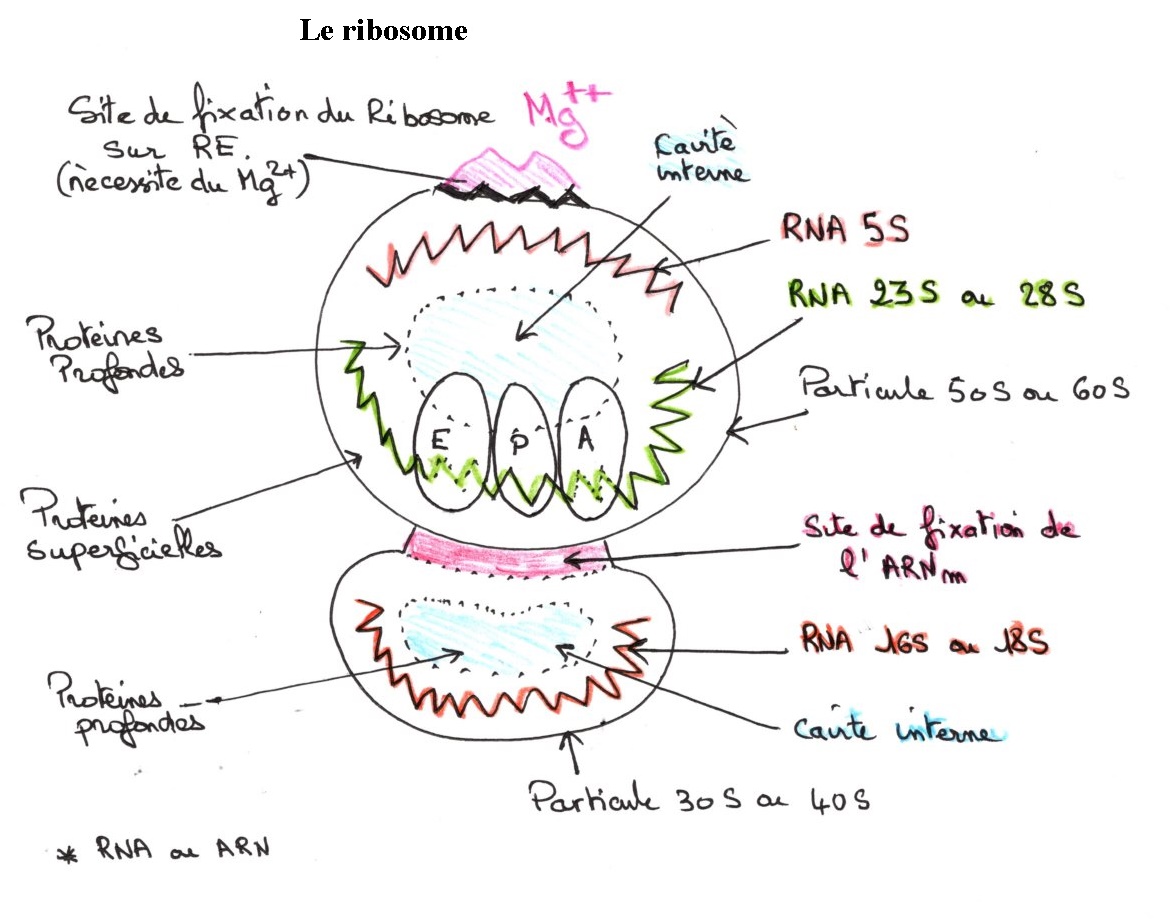 Le ribosome
Site de fixation du Ribosome
sur RE.
(nècessite du Mg²⁺)
Mg⁺⁺
Cavitè
interne
RNA 5S
RNA 23S ou 28S
Protéines
Profondes
Particule 50S ou 60S
E
P
A
Protéines
superficielles
Site de fixation de
l'ARNm
RNA 16S ou 18S
Protéines
profondes
Cavite interne
Particule 30S ou 40S
* RNA ou ARN